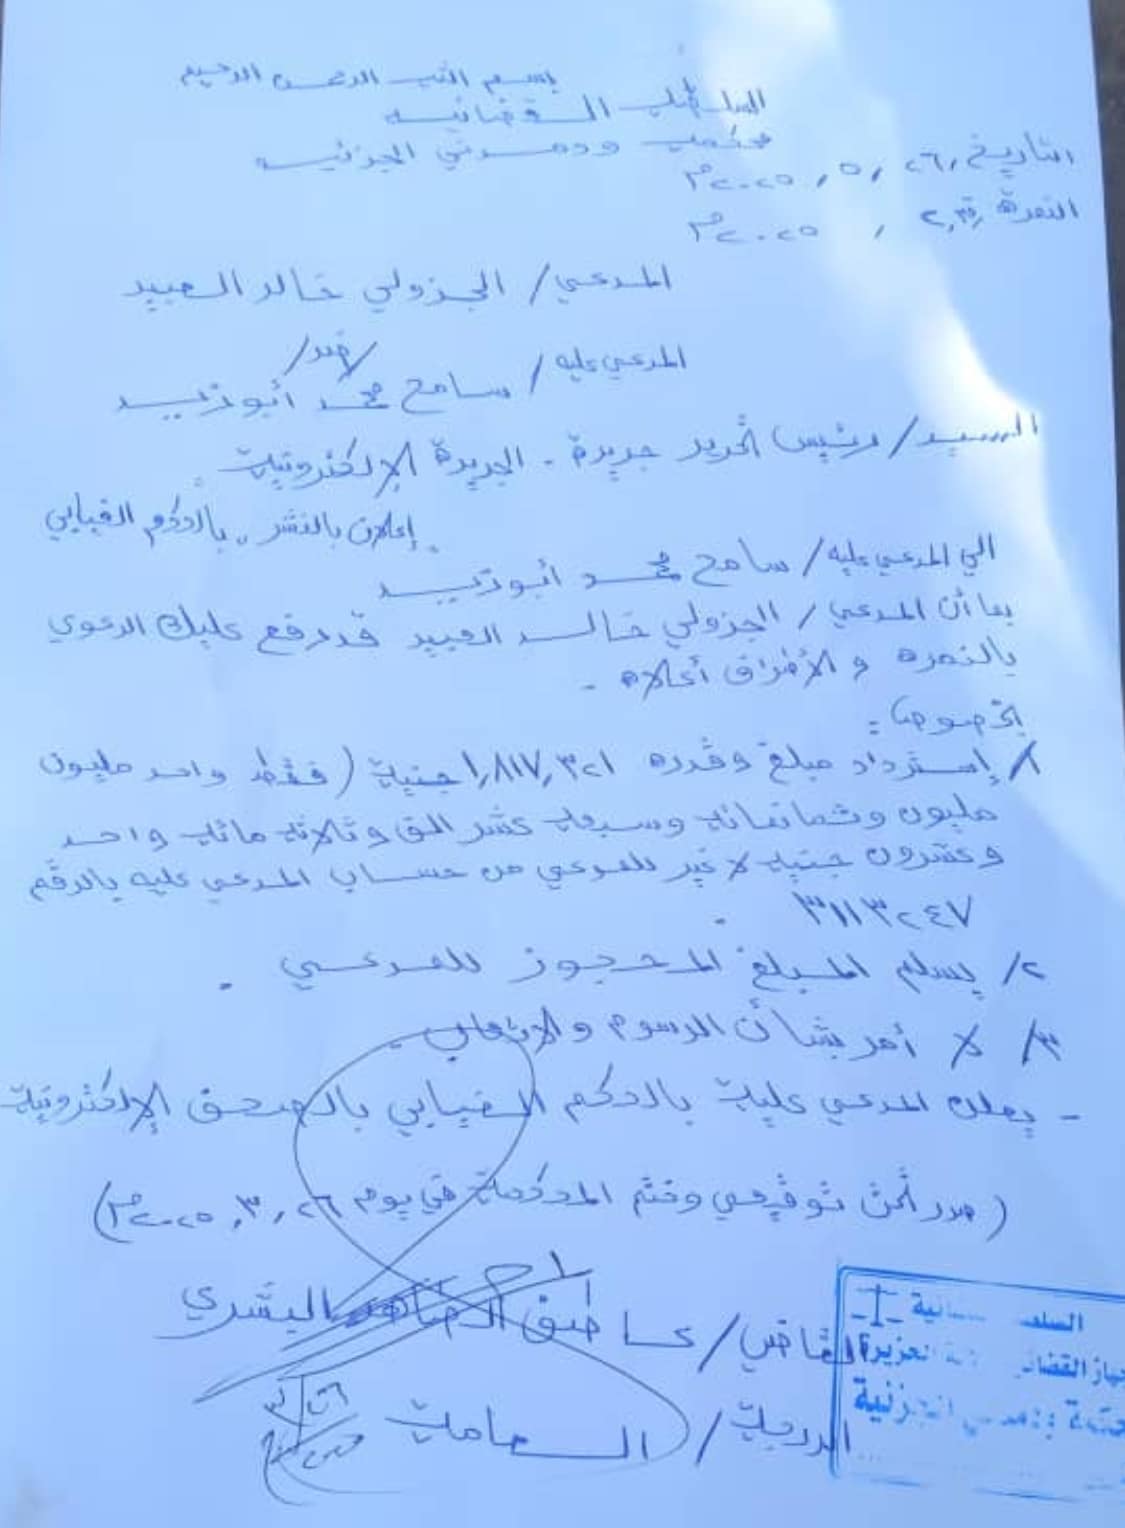 بسم الله الرحمن الرحيم
السلطة القضائيه
محكمة ودمدني الجزئيه
التاريخ ٢٦/ ٥/ ٢٠٢٥م
النمرة / ٢٠٢٥م
المدعي/ الجزولي خالد العبيد
/ضد/
المدعي عليه / سامح محمد أبوزيد
السيد/ رئيس تحرير جريدة - الجريدة الإلكترونية
إعلان بالنشر " بالحكم الغيابي
الي المدعي عليه/ سامح محمد أبوزيد
بما أن المدعي / الجزولي خالد العبيد قد رفع عليك الدعوي
بالنمره و الأطراف أعلاه -
بخصوص:
١/ إسترداد مبلغ وقدره ١,٨١٧,٣٢١ جنية (فقط واحد مليون
مليون وثمانمائة وسبعة عشر الف وثلاثة مائة واحد
وعشرون جنية لا غير للمدعي من حساب المدعي عليه بالرقم
٣١١٣٢٤٧ .
٢/ يسلم المبلغ المحجوز للمدعي .
٣/ لا أمر بشأن الرسوم والاتعاب .
- يعلن المدعي علية بالحكم الغيابي بالصحف الإلكترونية
(صدر تحت توقيعي وختم المحكمة في يوم ٢٦, ٣, ٢٠٢٥م)
القاضي/ البشري
الدرجة/ العامة
٢٦/
السلطة القضائية
جهاز القضائي الجزيرة
الجزئية